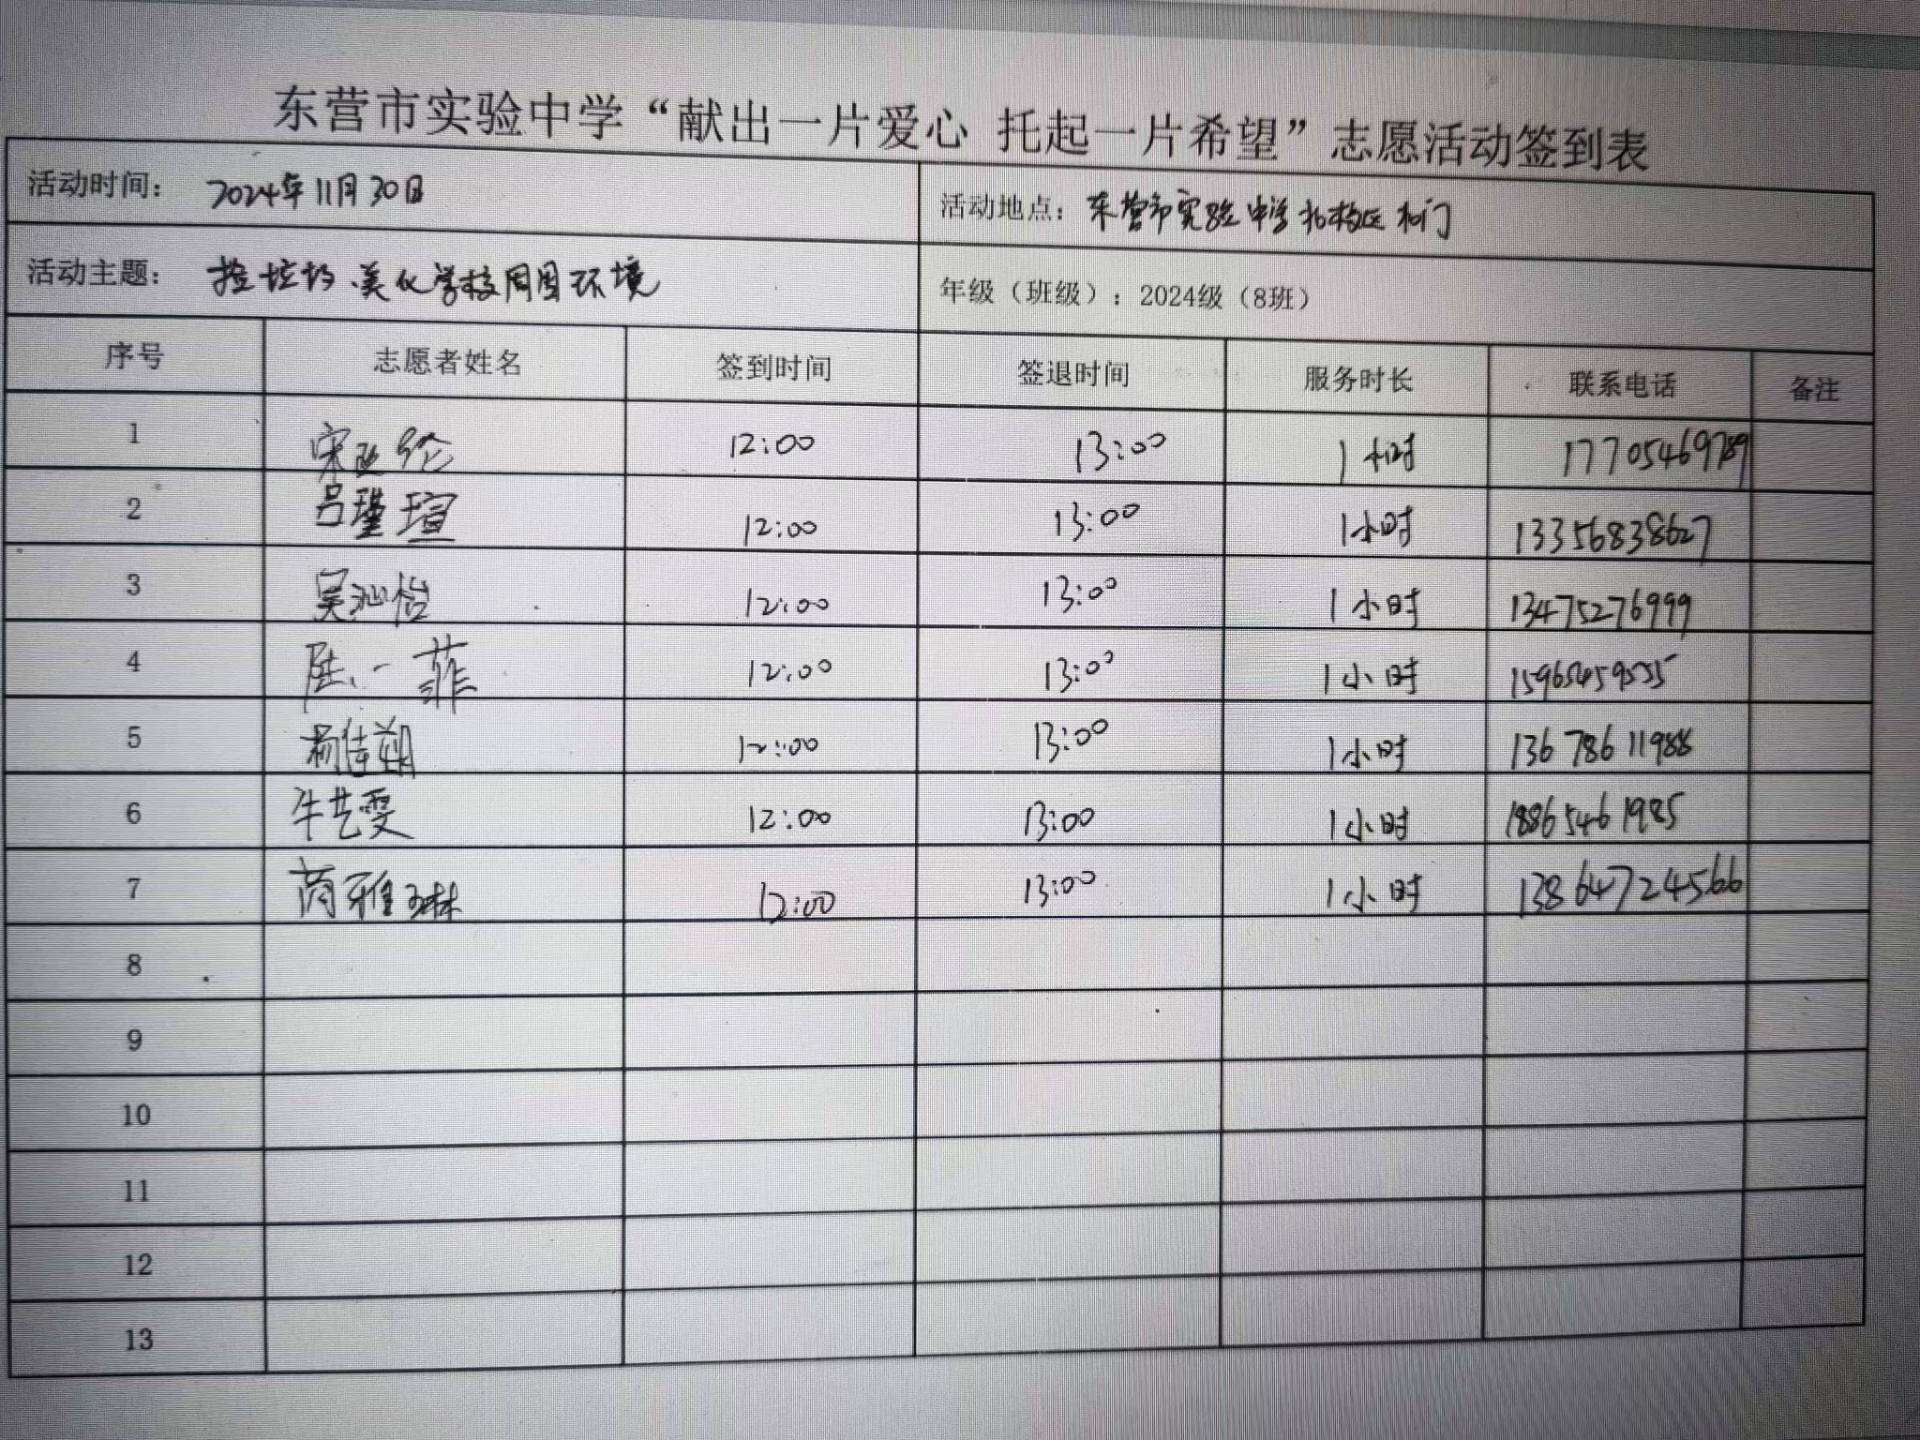 东营市实验中学“献出一片爱心 托起一片希望”志愿活动签到表
活动时间： 2024年11月30日 活动地点： 东营市实验中学 校区 门
活动主题： 捡垃圾、美化学校周围环境 年级（班级）：2024级（8班）
序号 志愿者姓名 签到时间 签退时间 服务时长 联系电话 备注
1 宋 伦 12:00 13:00 1小时 17705469789
2 吕瑾瑄 12:00 13:00 1小时 13356838627
3 吴沁怡 12:00 13:00 1小时 13475276999
4 一菲 12:00 13:00 1小时
5 杨佳 12:00 13:00 1小时 13678611988
6 牛艺雯 12:00 13:00 1小时 18865461985
7 雅琳 12:00 13:00 1小时 13864724566
8
9
10
11
12
13